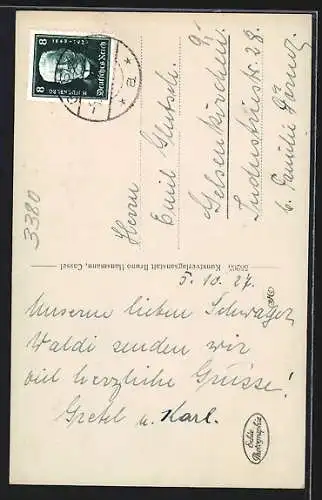 8 8
Deutsches Reich
Herrn
Emil
Gelsenkirchen
Industriestr. 28.
b. Familie
3380
Kunstverlagsanstalt Bruno Hansmann, Cassel
5.10.27.
Unserm lieben Schwager
Waldi senden wir
viel herzliche Grüsse!
Gretel u. Karl.
Echte
Photographie